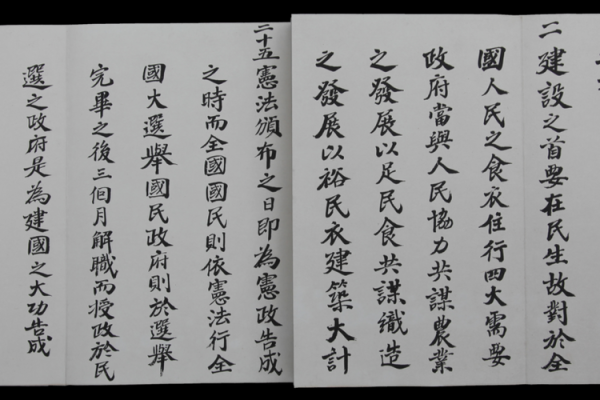 二建設之首要在民生故對於全
國人民之食衣住行四大需要
政府當與人民協力共謀農業
之發展以足民食共謀織造
之發展以裕民衣建築大計
二十五憲法頒布之日即為憲政告成
之時而全國國民則依憲法行全
國大選舉國民政府則於選舉
完畢之後三個月解職而授政於民
選之政府是為建國之大功告成